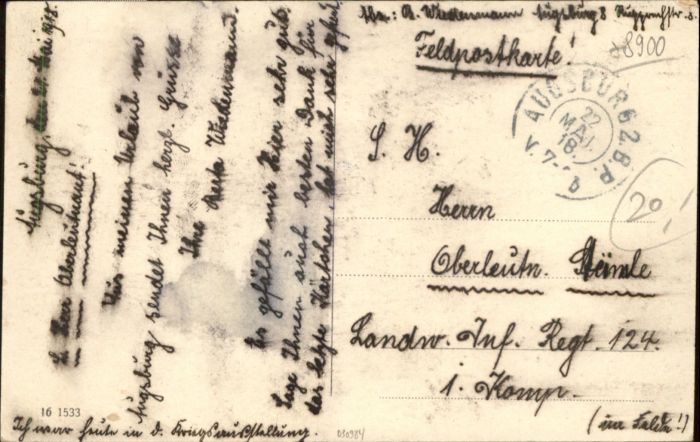 Abs.: R. Wiedenmann Augsburg 8
Feldpostkarte!
8900
AUGSBURG 2. B.P.
22
MAI.
18.
V. 7-
b
20,
S. H.
Herrn
Oberleutn. Steimle
Landw. Inf. Regt. 124.
1. Komp.
(im Felde!)
Augsburg, den 21. Mai 1918.
L. Herr Oberleutnant!
Aus meinem Urlaub in
Augsburg sendet Ihnen herzl. Grüsse
Ihre Wiedenmann.
Es gefällt mir hier sehr gut.
Sage Ihnen auch besten Dank für
das letzte Kärtchen, hat mich sehr gefreut
Ich war heute in d. Kriegsausstellung.
16 1533
030984